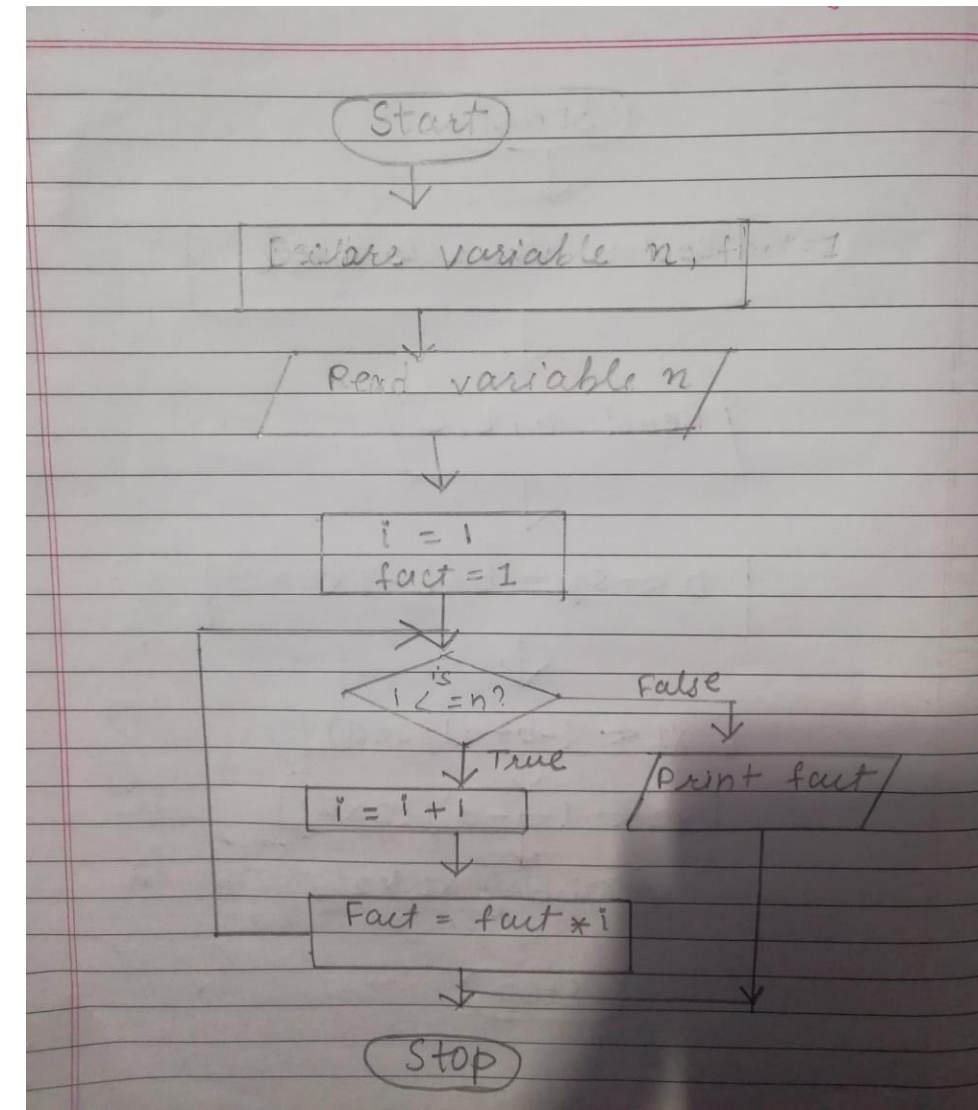 Start
Declare variable n, 1
Read variable n
i = 1
fact = 1
is
i < = n?
False
True
Print fact
i = i + 1
Fact = fact * i
Stop